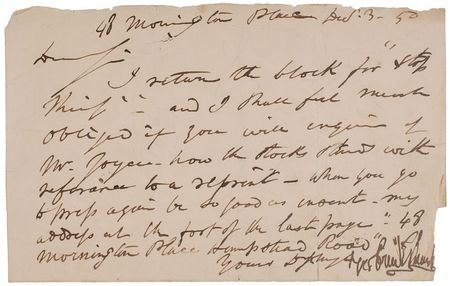 48 Mornington Place Dec. 3 - 50
Dear Sir
I return the block for "Stop
Thief" - and I shall feel much
obliged if you will enquire of
Mr. Joyce - how the stocks stand with
reference to a reprint - when you go
to press again be so good as insert - my
address at the foot of the last page. "48
Mornington Place Hampstead Road"
Yours